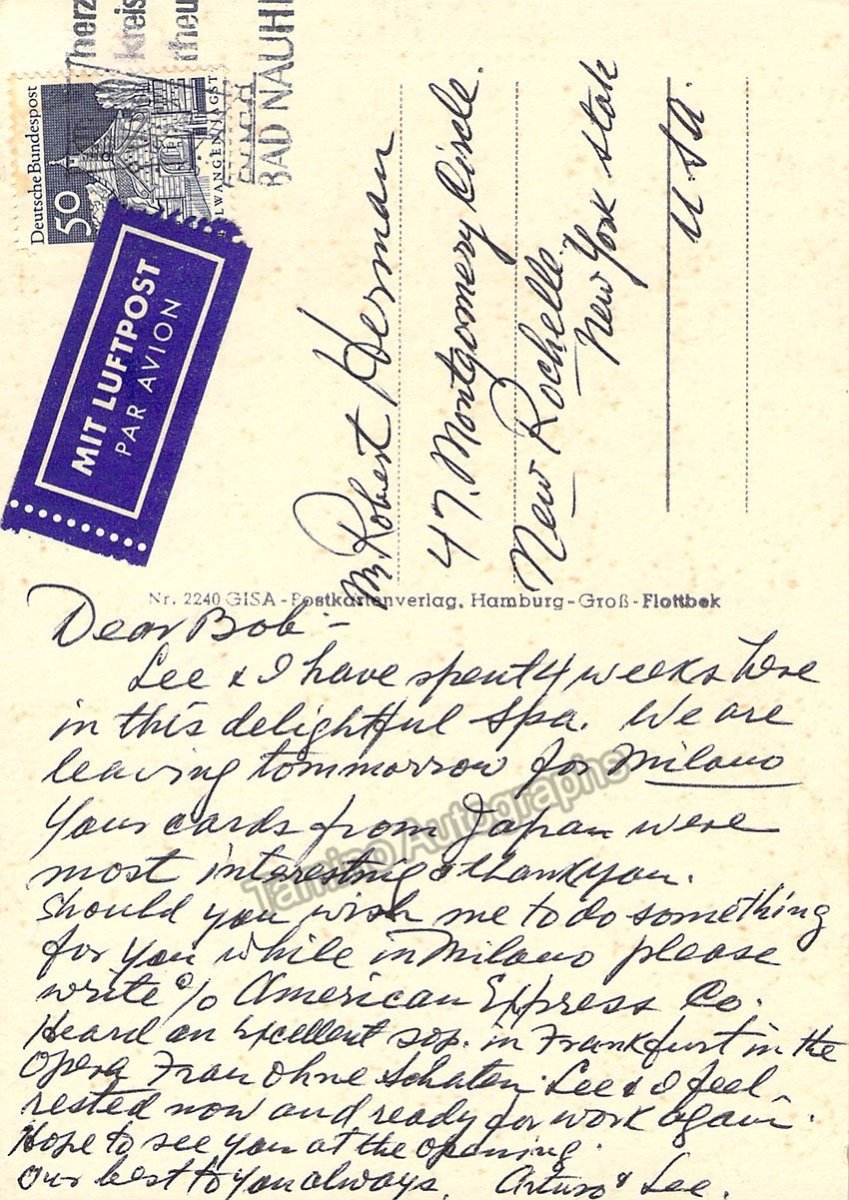 herz
kreis
rheu
BAD NAUHE
Deutsche Bundespost
50
LWANGEN/JAGST
MIT LUFTPOST
PAR AVION
Mr. Robert Herman
47. Montgomery Circle.
New Rochelle.
New York State
U.S.A.
Nr. 2240 GISA-Postkartenverlag, Hamburg-Groß-Flottbek
Dear Bob:-
Lee & I have spent 4 weeks here
in this delightful spa. We are
leaving tommorrow for Milano
Your cards from Japan were
most interesting & thank you.
Should you wish me to do something
for you while in Milano please
write c/o American Express Co.
Heard an excellent sop. in Frankfurt in the
Opera Frau ohne Schaten. Lee & I feel
rested now and ready for work again.
Hope to see you at the opening.
Our best to you always. Arturo & Lee.
Tamino Autographs